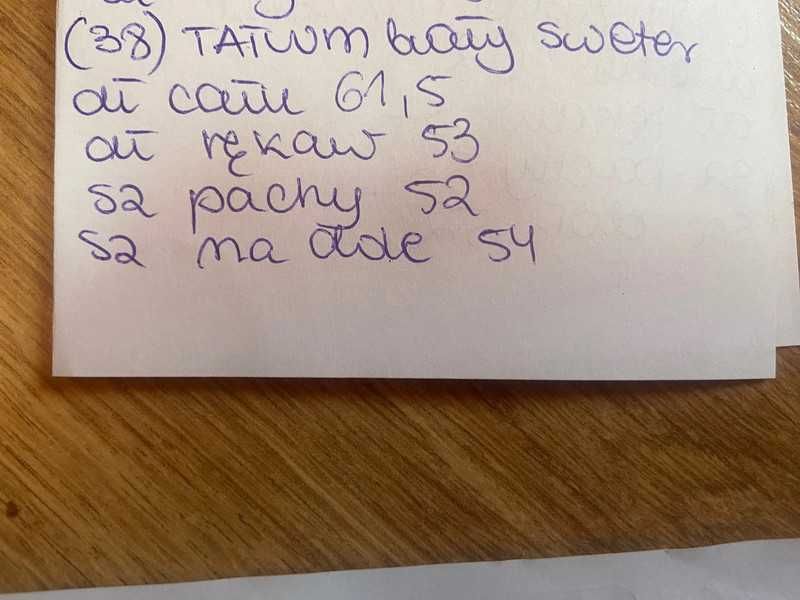 (38) TATUUM biały sweter
dł cały 61,5
dł rękaw 53
sz pachy 52
sz na dole 54